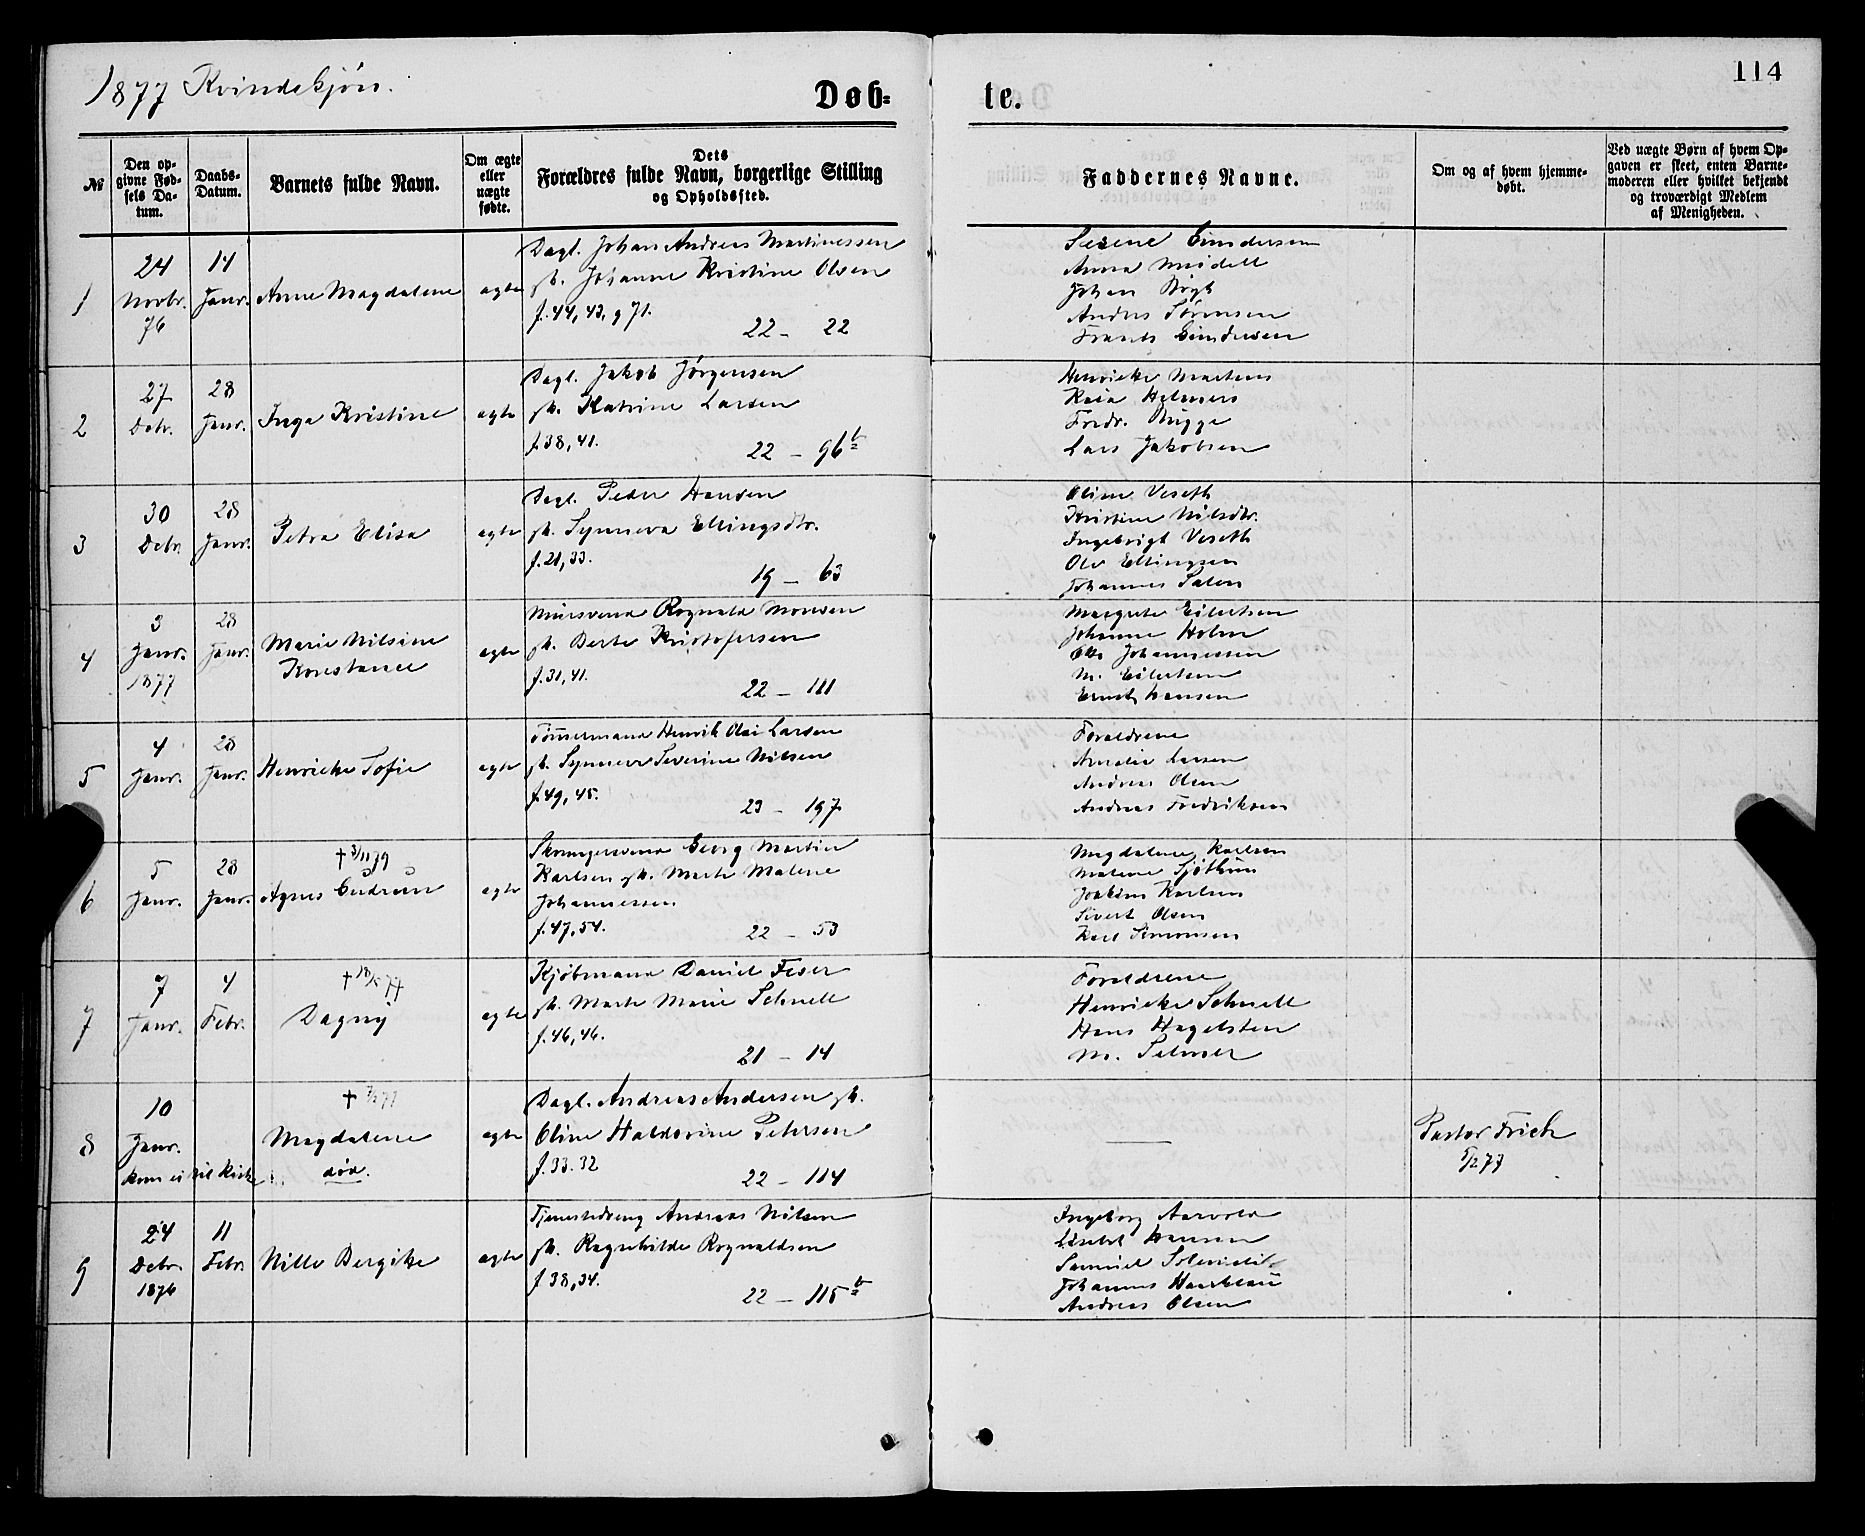 1877 Kvindekjön.
Døb-
te.
114
№
Den op-
givne Fød-
sels Da-
tum.
Daabs-
Datum.
Barnets fulde Navn.
Om ægte
eller
uægte
fødte.
Dets
Forældres fulde Navn, borgerlige Stilling
og Opholdssted.
Faddernes Navne.
Om og af hvem hjemme-
døbt.
Ved uægte Børn af hvem Op-
gaven er skeet, enten Barne-
moderen eller hvilket bekjendt
og troværdigt Medlem
af Menigheden.
1
24
Novbr.
76
14
Janr.
Anne Magdalene
ægte
Dagl. Johan Andreas Martinessen
Johanne Kristine Olsen
f. 44, 43, g 71.
22 - 22
Gundersen
Anna
Johan
Anders Sørensen
Gundersen
2
27
Debr.
28
Janr.
Inga Kristine
ægte
Dagl. Jakob Jørgensen
Katrine Larsen
f. 38, 41.
22 - 96 b
Henrikke Martens
Kaia
Fredr. Brügge
Lars Jakobsen
3
30
Debr.
28
Janr.
Petra Elisa
ægte
Dagl. Peder Hansen
Synneva Ellingsdtr.
f. 21, 33.
19 - 63
Oline Veseth
Kristine Nilsdtr.
Ingebrigt Veseth
Ole Ellingsen
Johannes
4
3
Janr.
1877
28
Janr.
Marie Nilsine
Konstance
ægte
Muursvend Rognald Monsen
Berte Kristofersen
f. 31, 41.
22 - 111
Margrete Eilertsen
Johanne Holm
Johannessen
M. Eilertsen
Ernst Hansen
5
4
Janr.
28
Janr.
Henrikke Sofie
ægte
Tømmermand Henrik Olai Larsen
Synneve Severine Nilsen
f. 49, 45.
23 - 197
Forældrene
Amalie Larsen
Andreas Olsen
Andreas Fredriksen
6
5
Janr.
28
Janr.
† 3/11 79
Agnes Gudrun
ægte
Georg Martin
Karlsen Marte Malene
Johannessen
f. 47, 54.
22 - 53
Magdalene Karlsen
Malene
Joakim Karlsen
Sivert Olsen
Karl Simonsen
7
7
Janr.
4
Febr.
†
Dagny
ægte
Kjöbmand Daniel
Marte Marie Schnell
f. 46, 46.
21 - 14
Forældrene
Henrikke Schnell
Hans Hagelsteen
M.
8
10
Janr.
kom ei til Kirke
†
Magdalene
død.
ægte
Dagl. Andreas Andersen
Oline Haldorine Petersen
f. 33. 32
22 - 114
Pastor Frich
5/2 77
9
24
Debr.
1876
11
Febr.
Nille Bergitte
ægte
Tjenestedreng Andreas Nilsen
Ragnhilde Rognaldsen
f. 38, 34.
22 - 115 b
Ingeborg
Lisebet Hansen
Samuel
Johannes
Andreas Olsen